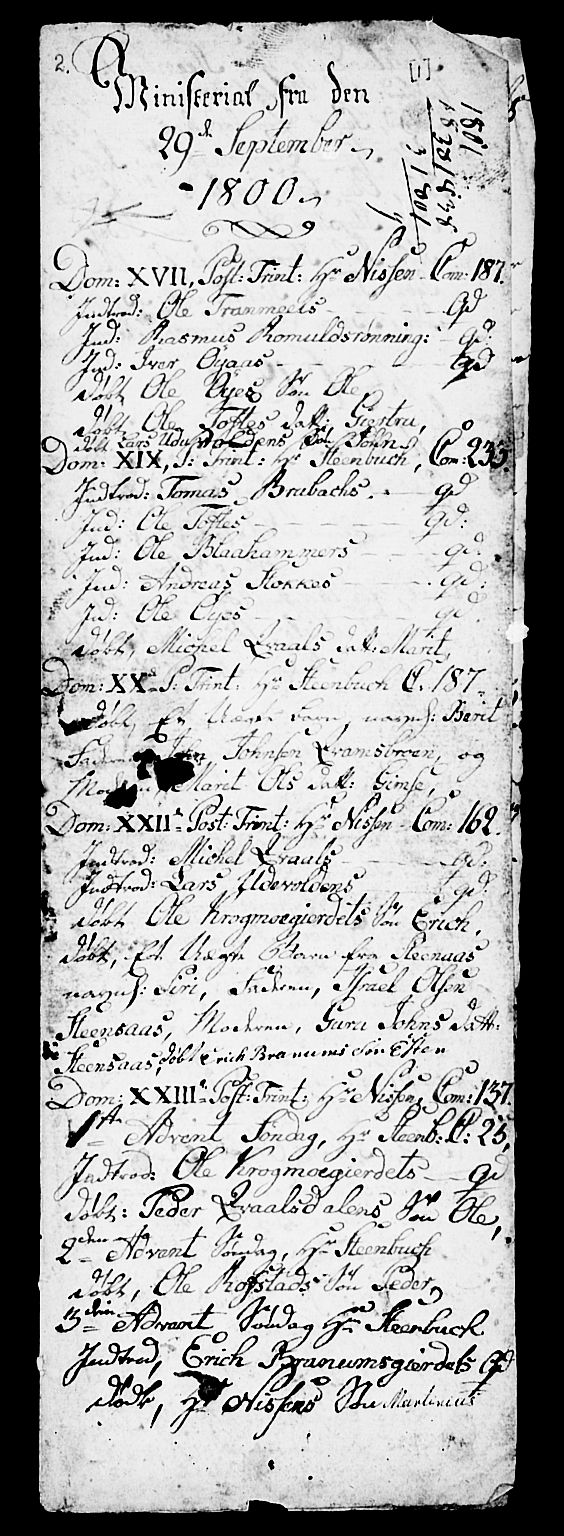 2.
[1]
Ministerial fra den
29de September
1800
1801
Dom: XVII, Post: Trint: Hr Nissen Com: 187.
Indtrod: Ole Tranmoels qd
Ind: Rasmus Romuldsrønning: qd:
Ind: Iver Øyaas qd
døbt Ole Øyes Søn Ole
døbt Ole Toftes datt: Giertru,
døbt Lars Udu Søn John
Dom: XIX, P: Trint: Hr Steenbuch, Com: 235.
Indtrod: Tomas Brubachs. qd
Ind: Ole Toftes qd:
Ind: Ole Blaahammers qd:
Ind: Andreas Stokkes qd:
Ind: Ole Øyes qd.
døbt, Michel Qraals datt: Marit,
Dom: XX P: Trint: Hr Steenbuch C. 187
døbt, Et Uægte barn, navnl: Berit
Faderen Johnsen Qramsbroen, og
Moderen, Marit Ols datt: Gimse,
Dom: XXII Post: Trint: Hr Nissen Com: 162.
Indtrod: Michel Qraals qd:
Indtrod: Lars Udevoldens qd:
døbt Ole Krogmoegierdets Søn Erich,
døbt, Et Uægte Barn fra Steenaas
navnl: Siri, Faderen, Israel Olsen
Steensaas, Moderen, Guru Johns datt:
Steensaas, døbt Erich Branums Søn Esten
Dom: XXIII Post: Trint: Hr Nissen, Com: 137.
1ste Advent Søndag, Hr Steenb: C: 25,
Indtrod: Ole Krogmoegierdets qd
døbt: Peder Qraalsdalens Søn Ole,
2den Advent Søndag, Hr Steenbuch
døbt, Ole Rofstads Søn Peder,
3die Advent Søndag Hr Steenbuch
Indtrod, Erich Branumsgierdets qd
døbt, Hr Nissens Søn Martinus